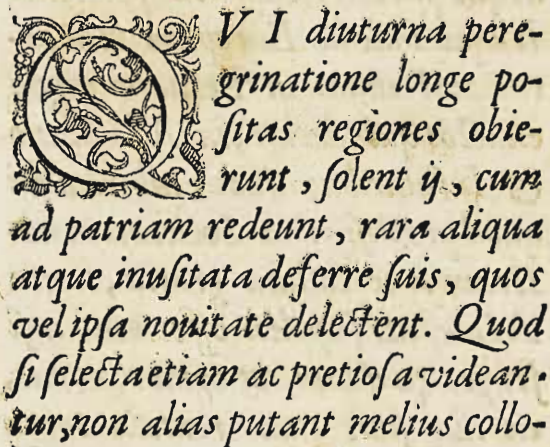 QVI diuturna pere-
grinatione longe po-
ſitas regiones obie-
runt, ſolent ij, cum
ad patriam redeunt, rara aliqua
atque inuſitata deferre ſuis, quos
vel ipſa nouitate delectent. Quod
ſi ſelecta etiam ac pretioſa videan-
tur, non alias putant melius collo-